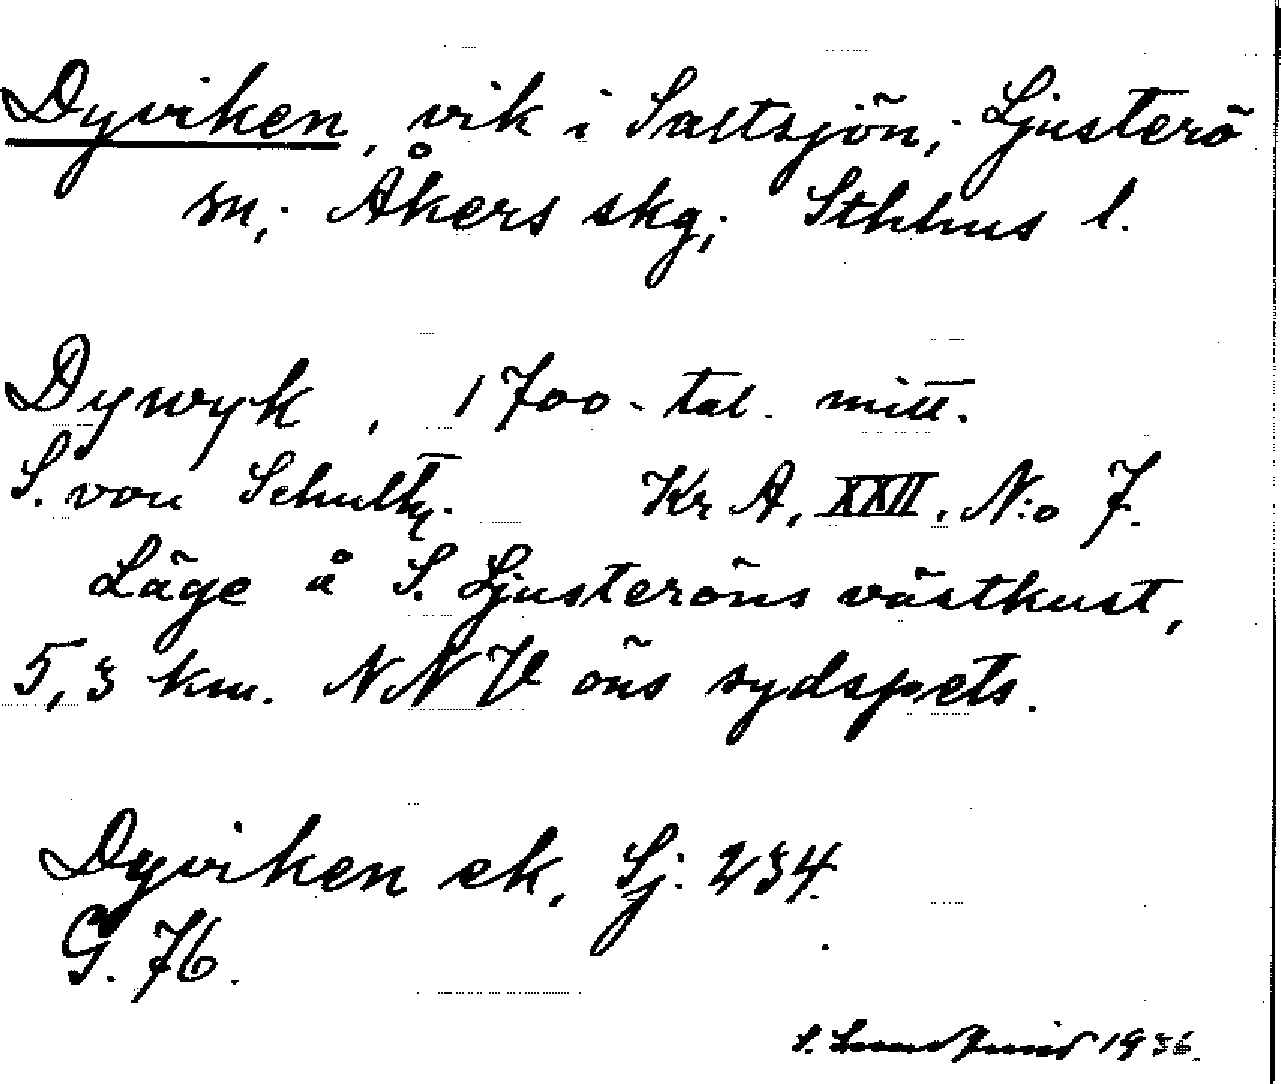 Dyviken, vik i Saltsjön; Ljusterö
sn; Åkers skg; Sthlms l.
Dywyk, 1700-tal. mitt.
S. von Schultz. Kr A, XXII. N:o 7.
Läge å S. Ljusteröns västkust,
5,3 km. NNV öns sydspets.
Dyviken ek. Sj. 234.
G. 76.
S. 1936.